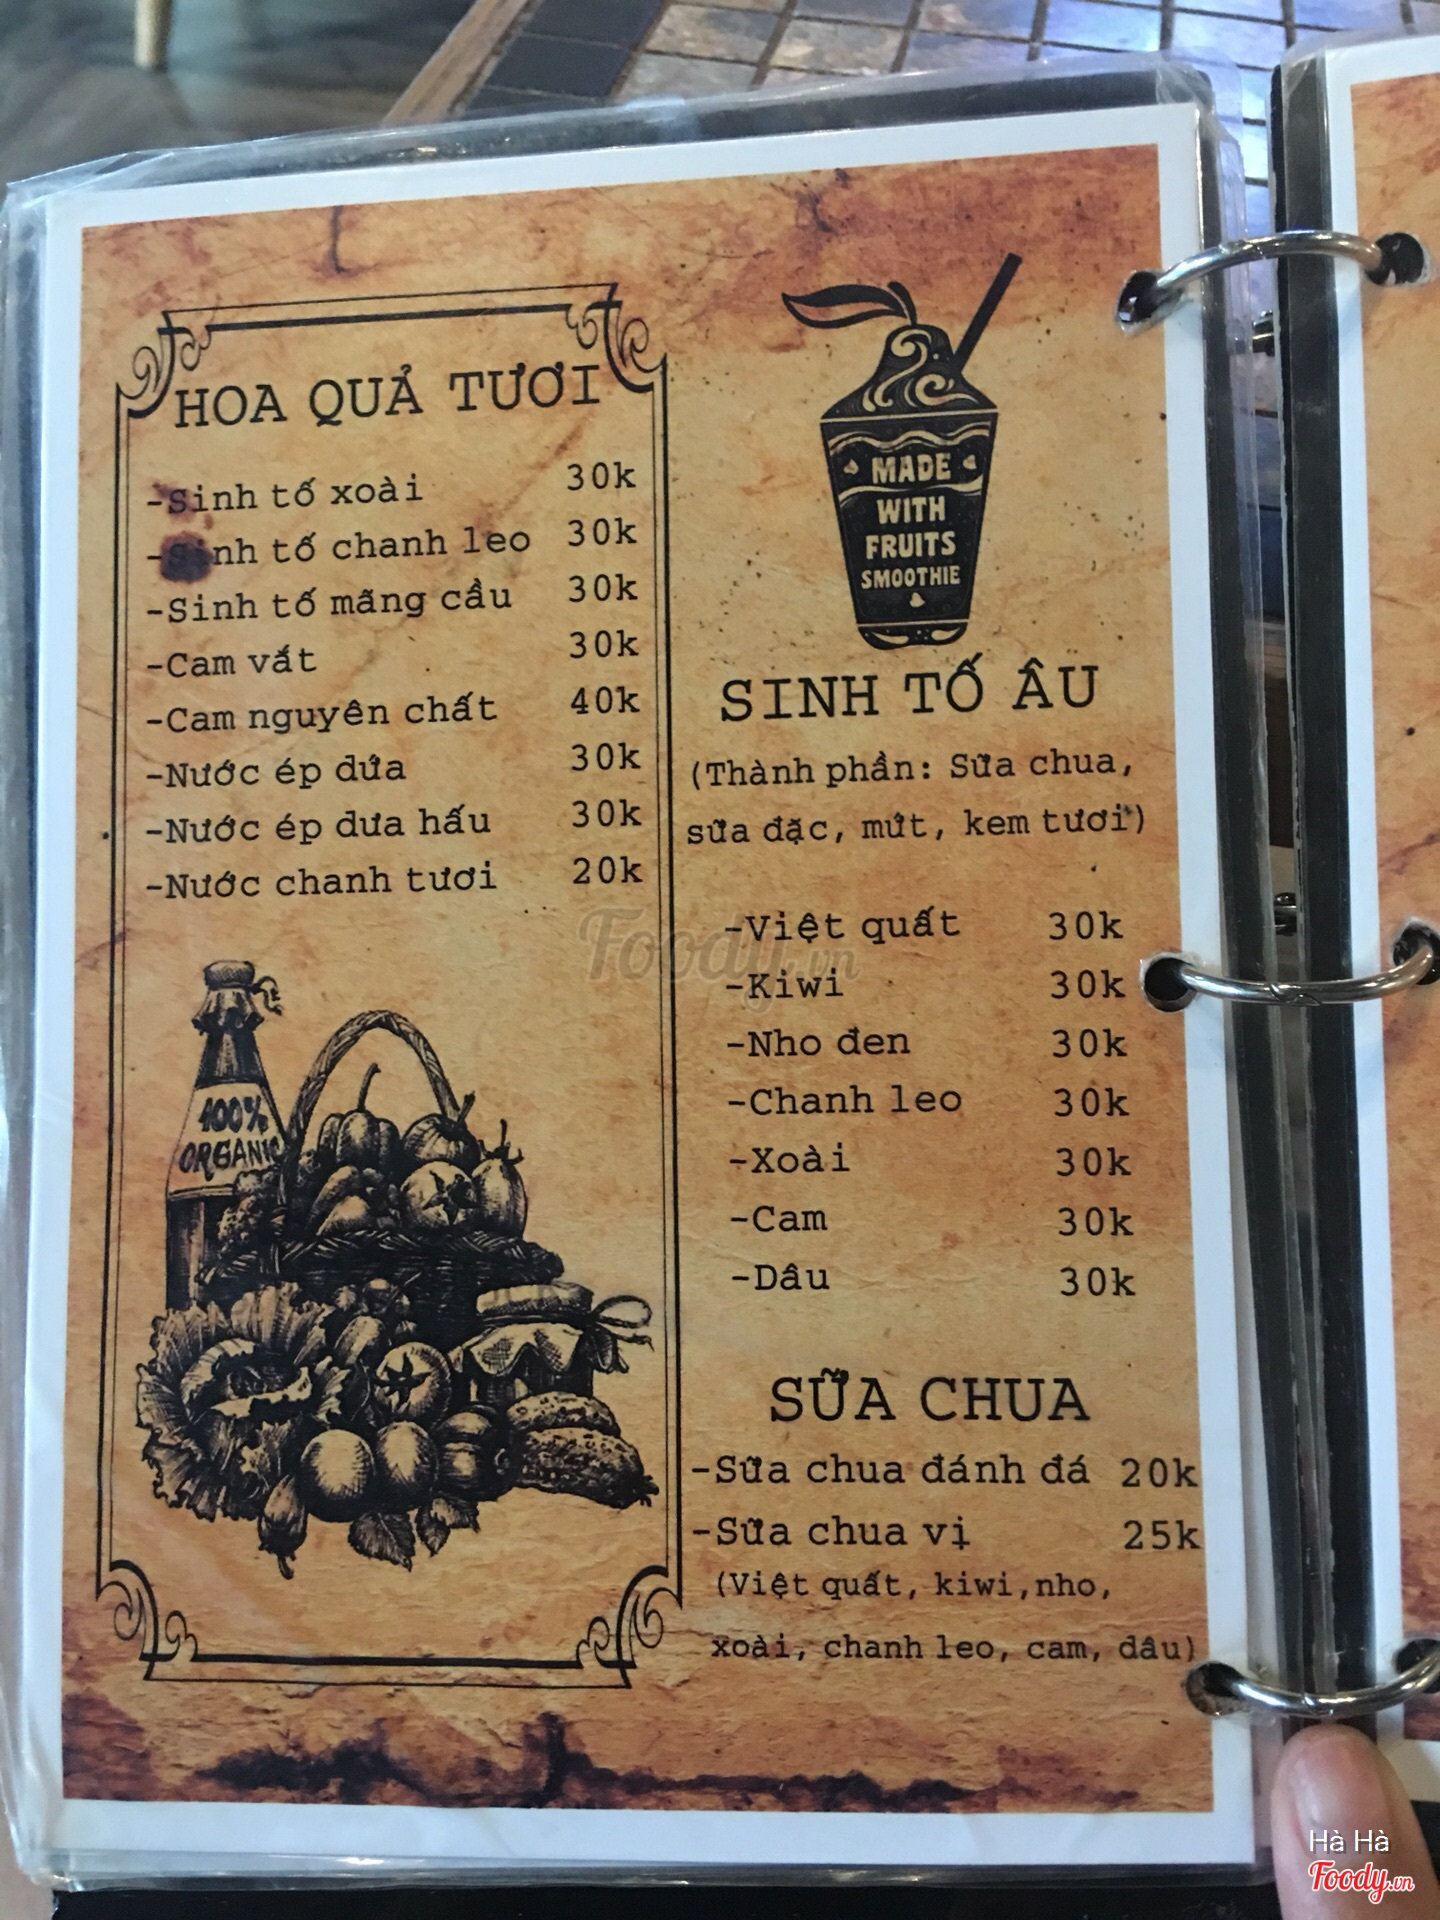 HOA QUẢ TƯƠI
-Sinh tố xoài 30k
-Sinh tố chanh leo 30k
-Sinh tố mãng cầu 30k
-Cam vắt 30k
-Cam nguyên chất 40k
-Nước ép dứa 30k
-Nước ép dưa hấu 30k
-Nước chanh tươi 20k
100%
ORGANIC
MADE
WITH
FRUITS
SMOOTHIE
SINH TỐ ÂU
(Thành phần: Sữa chua,
sữa đặc, mứt, kem tươi)
-Việt quất 30k
-Kiwi 30k
-Nho đen 30k
-Chanh leo 30k
-Xoài 30k
-Cam 30k
-Dâu 30k
SỮA CHUA
-Sữa chua đánh đá 20k
-Sữa chua vị 25k
(Việt quất, kiwi,nho,
xoài, chanh leo, cam, dâu)
Foody.vn
Hà Hà
Foody.vn